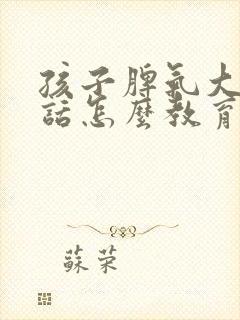 孩子脾氣大
話怎麼教育
蘇荣